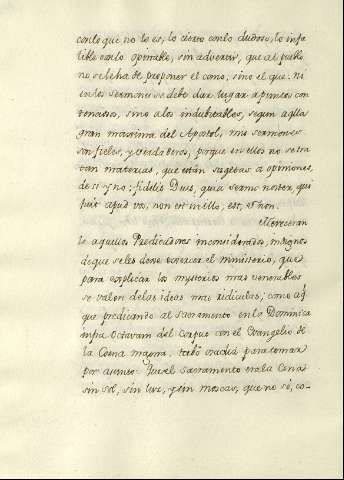 con lo que no lo es; lo cierto con lo dudoso, lo infa
lible con lo opinable, sin advertir, que al pueblo
no se le ha de proponer el como, sino el que: ni
en los sermones se debe dar lugar a puntos con
tenciosos, sino a los indubitables, segun aqlla
gran maxima del Apostol, mis sermones
son fieles, y verdaderos, porque en ellos no se tra
tan materias, que estàn sugetas a opiniones,
de si y no: fidelis Deus, quia sermo noster, qui
fuit apud vos, non est in illo, est, et non.
Mereceran
le aquellos Predicadores inconsiderados, indignos
de que se les dexe exercer el ministerio, que
para explicar los mysterios mas venerables
se valen de las ideas mas ridiculas; como aql
que predicando al Sacramento en la Dominica
infra Octavam del Corpus con el Evangelio de
la Coena magna, para tomar
por asunto: Que el Sacramento era la Cena
sin sol, sin luz, y sin moscas, que no sè, co-